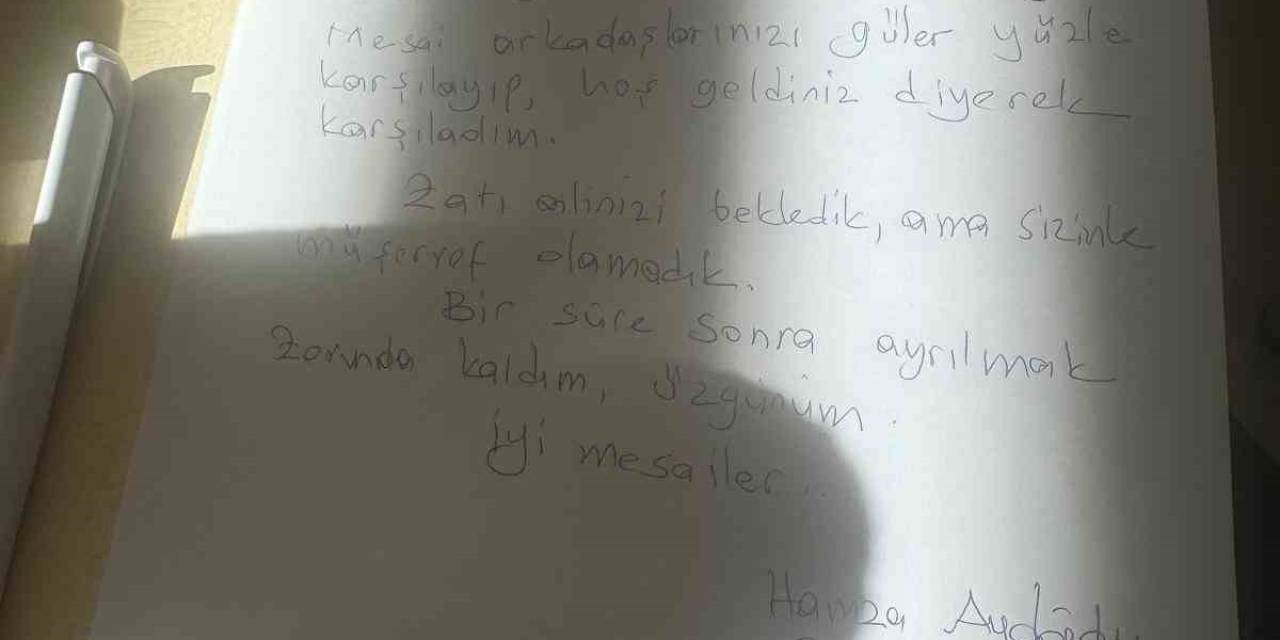 Mesai arkadaşlarınızı güler yüzle
karşılayıp, hoş geldiniz diyerek
karşıladım.
Zatı alinizi bekledik, ama sizinle
müşerref olamadık.
Bir süre sonra ayrılmak
zorunda kaldım, üzgünüm.
iyi mesailer...
Hamza